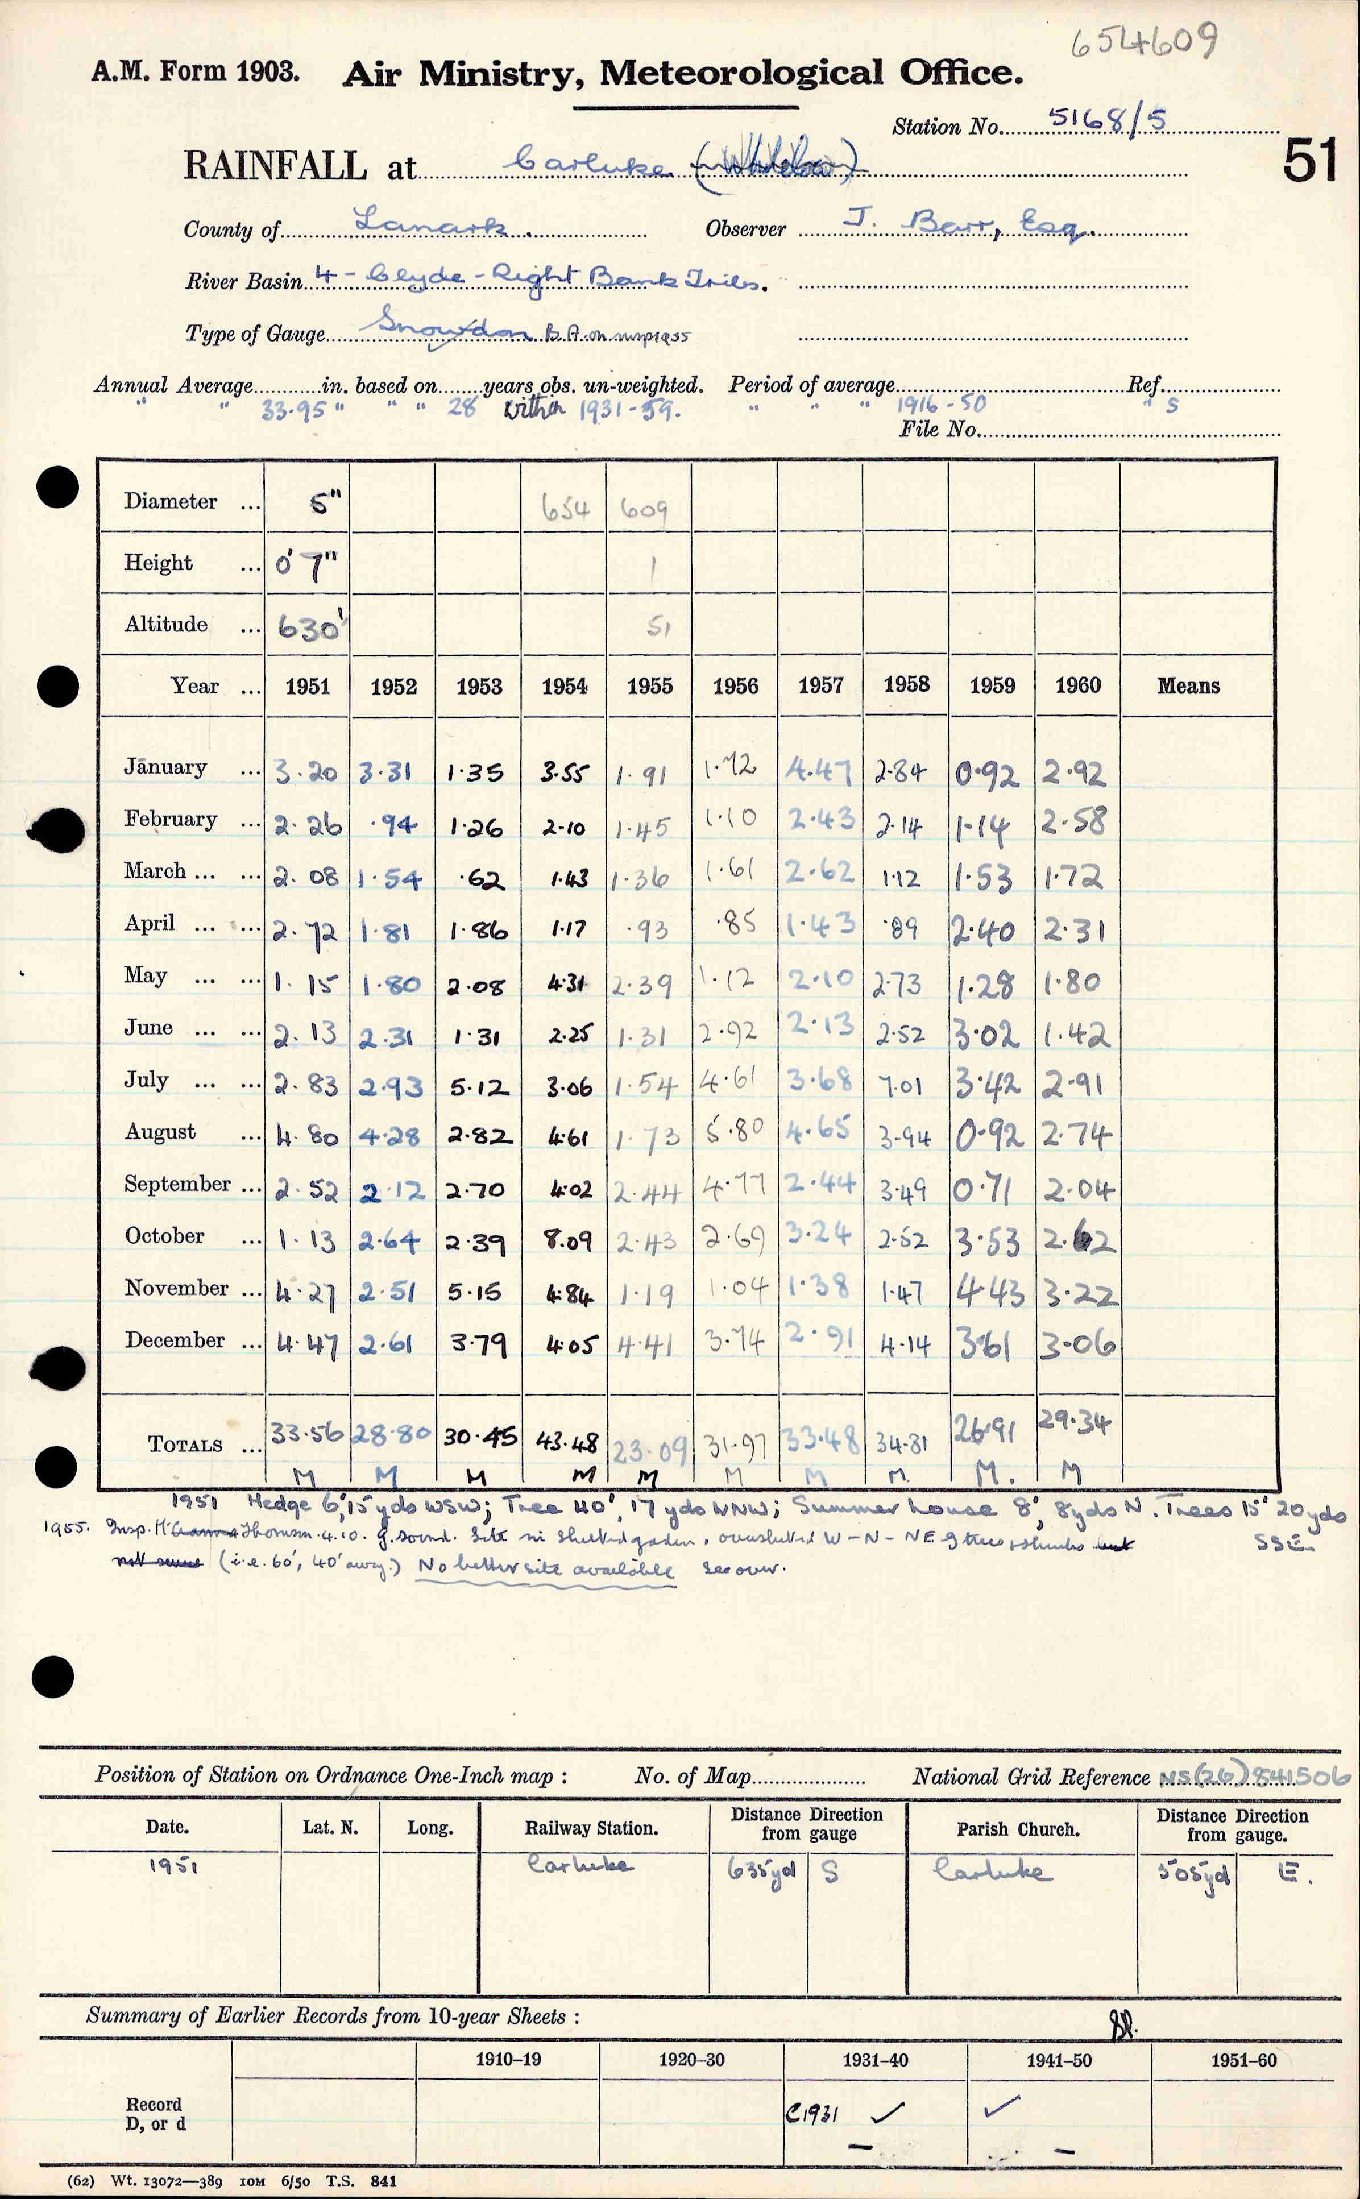 654609
A.M. Form 1903. Air Ministry, Meteorological Office.
Station No. 5168/5
51
RAINFALL at Carluke
County of Lanark. Observer J. Barr, Esq.
River Basin 4 - Clyde - Right Bank Tribs.
Type of Gauge Snowdon B.A. on
Annual Average in. based on years obs. un-weighted. Period of average Ref.
" " 33.95 " " " 28 within 1931-59. " " " 1916-50 " S
File No.
Diameter ... 5" 654 609
Height ... 0' 7" 1
Altitude ... 630' 51
Year ... 1951 1952 1953 1954 1955 1956 1957 1958 1959 1960 Means
January ... 3.20 3.31 1.35 3.55 1.91 1.72 4.47 2.84 0.92 2.92
February ... 2.26 .94 1.26 2.10 1.45 1.10 2.43 2.14 1.14 2.58
March ... ... 2.08 1.54 .62 1.43 1.36 1.61 2.62 1.12 1.53 1.72
April ... ... 2.72 1.81 1.86 1.17 .93 .85 1.43 .89 2.40 2.31
May ... ... 1.15 1.80 2.08 4.31 2.39 1.12 2.10 2.73 1.28 1.80
June ... ... 2.13 2.31 1.31 2.25 1.31 2.92 2.13 2.52 3.02 1.42
July ... ... 2.83 2.93 5.12 3.06 1.54 4.61 3.68 7.01 3.42 2.91
August ... 4.80 4.28 2.82 4.61 1.73 5.80 4.65 3.94 0.92 2.74
September ... 2.52 2.12 2.70 4.02 2.44 4.77 2.44 3.49 0.71 2.04
October ... 1.13 2.64 2.39 8.09 2.43 2.69 3.24 2.52 3.53 2.62
November ... 4.27 2.51 5.15 4.84 1.19 1.04 1.38 1.47 4.43 3.22
December ... 4.47 2.61 3.79 4.05 4.41 3.74 2.91 4.14 3.61 3.06
TOTALS ... 33.56 28.80 30.45 43.48 23.09 31.97 33.48 34.81 26.91 29.34
M M M M M M M M. M. M
1951 Hedge 6', 15 yds WSW; Tree 40', 17 yds WNW; Summer house 8', 8 yds N. Trees 15' 20 yds SSE
1955. Insp. Thomson 4.10. g. sound. Site in sheltered garden, oversheltered W - N - NE by trees & shrubs but
not (i.e. 60', 40' away.) No better site available See over.
Position of Station on Ordnance One-Inch map : No. of Map National Grid Reference NS(26)841506
Date. Lat. N. Long. Railway Station. Distance Direction from gauge Parish Church. Distance Direction from gauge.
1951 Carluke 635yd S Carluke 505yd E.
Summary of Earlier Records from 10-year Sheets :
1910–19 1920–30 1931–40 1941–50 1951–60
Record D, or d C1931 ✓ ✓
(62) Wt. 13072—389 10M 6/50 T.S. 841